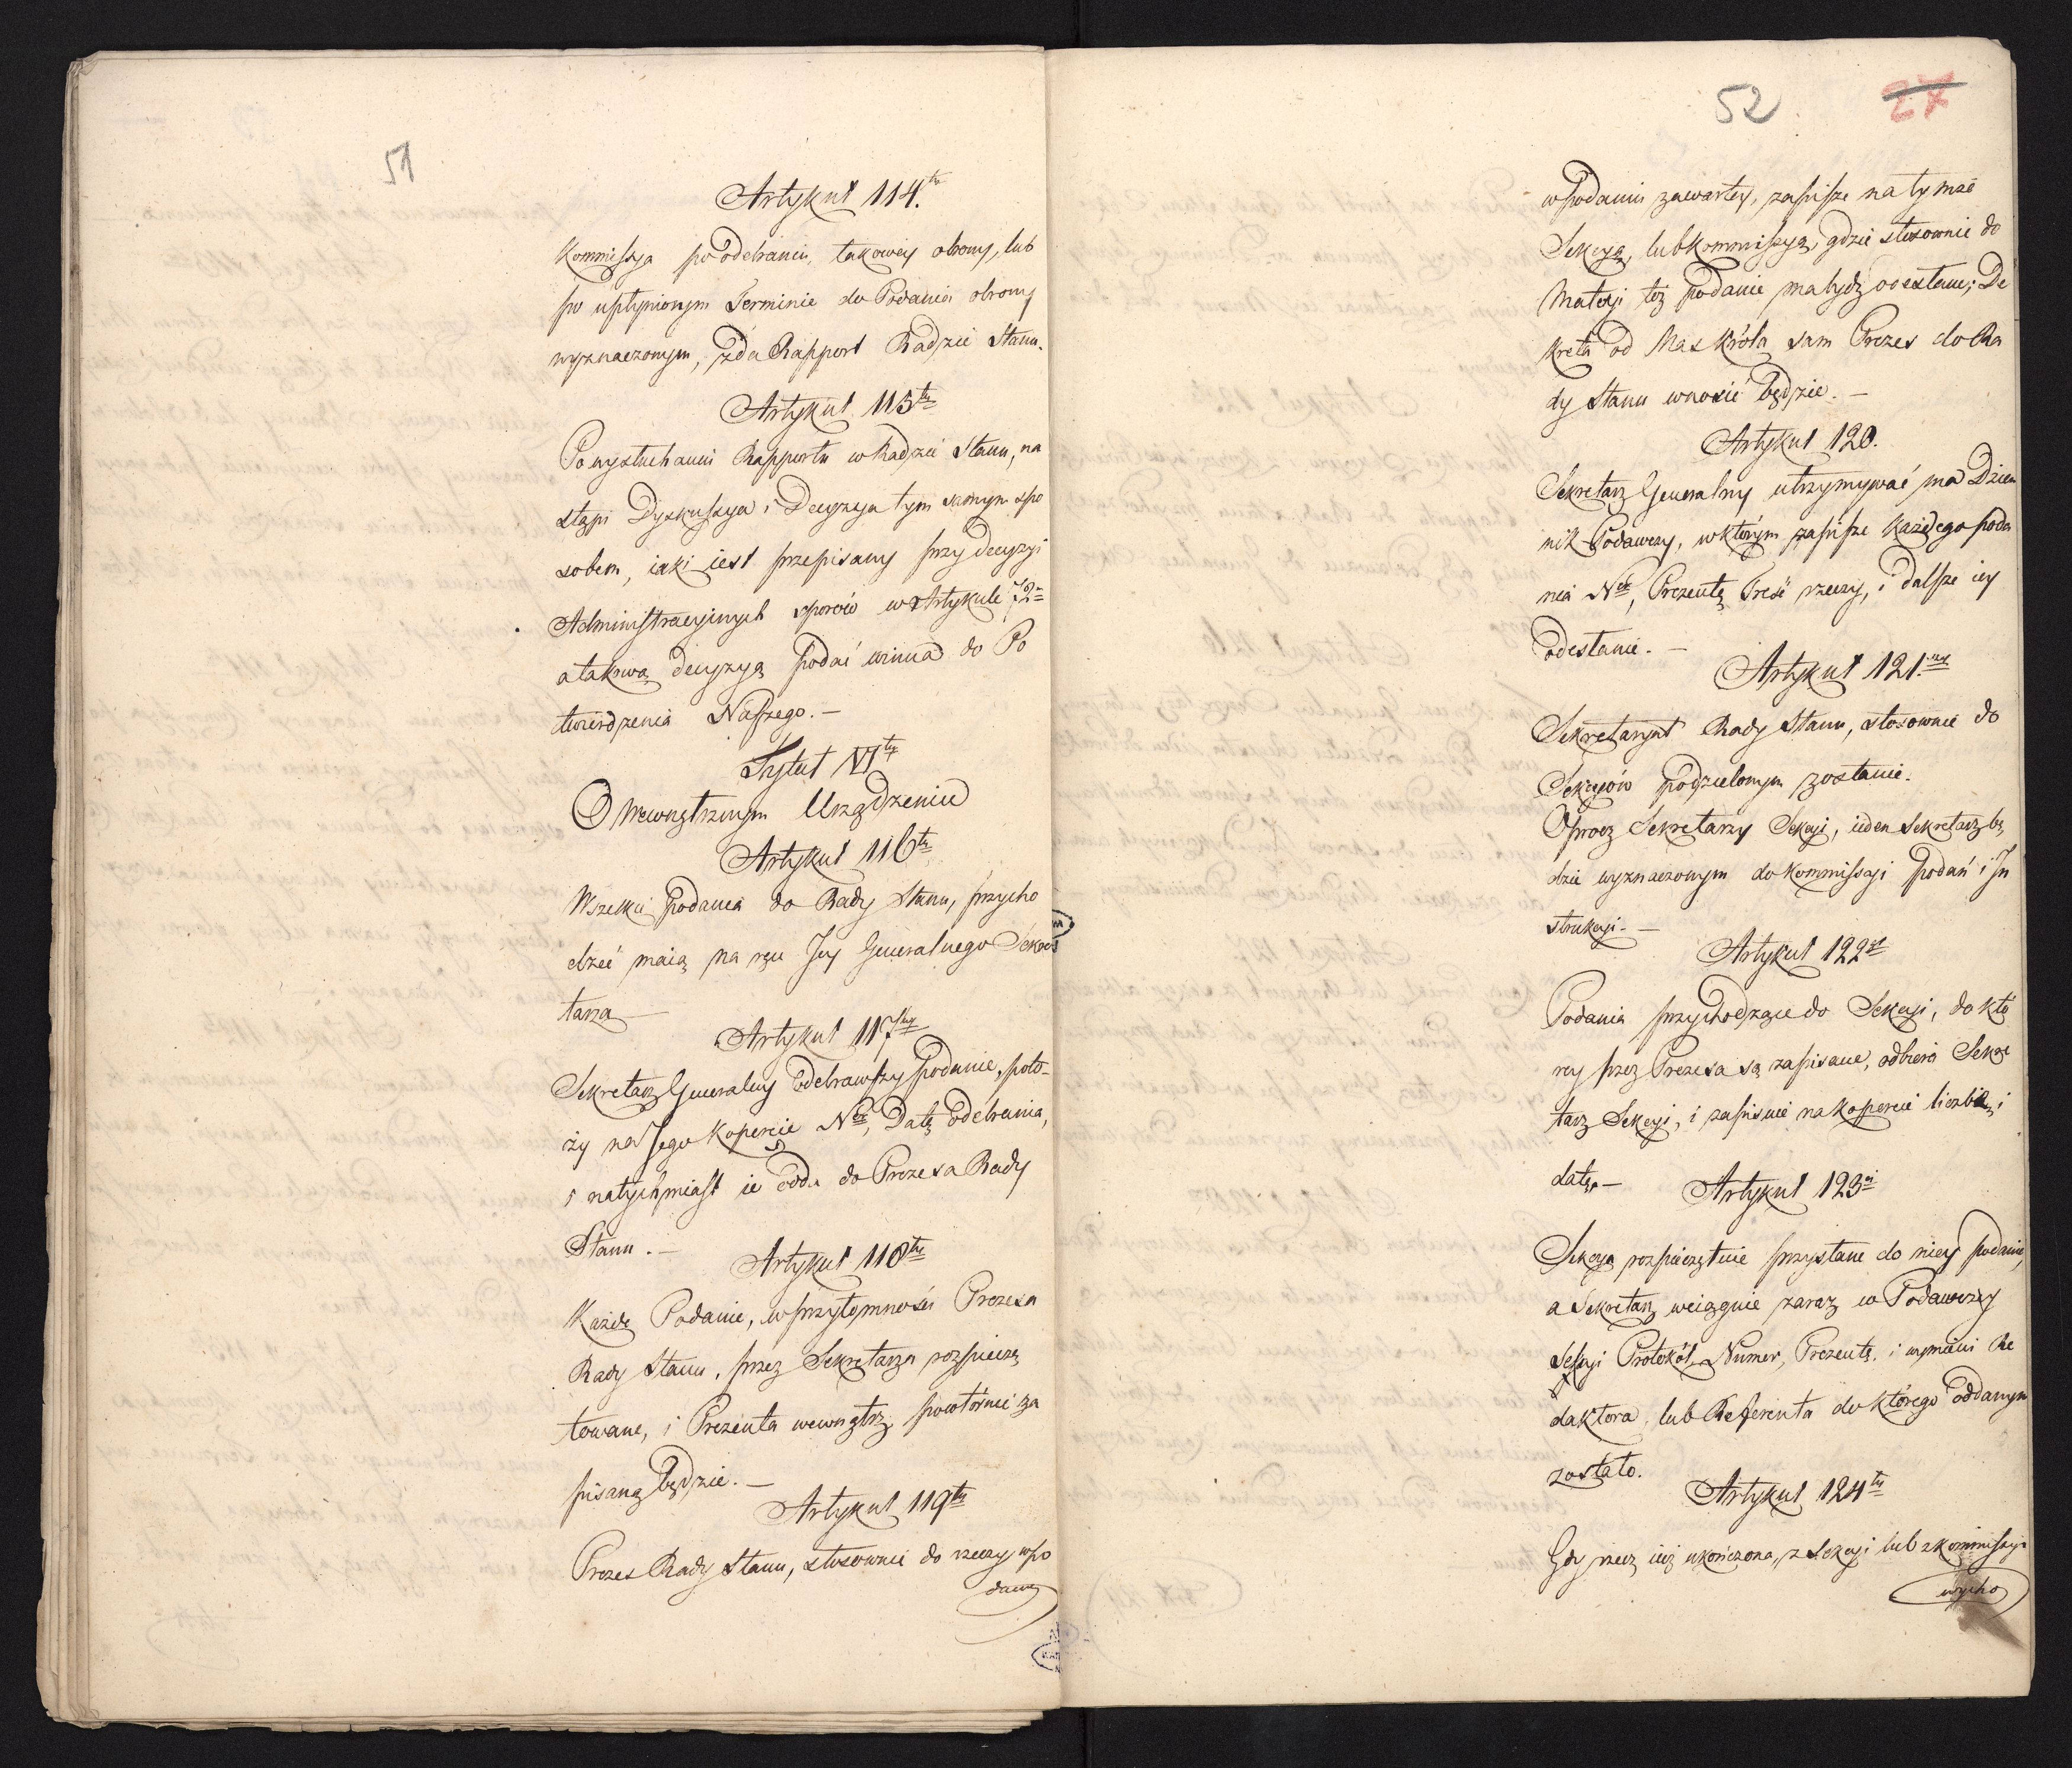 51
Artykuł 114.ty
Kommissya po odebraniu takowey obrony, lub
po upłynionym Terminie do Podania obrony
wyznaczonym, zda Rapport Radzie Stanu.
Artykuł 115ty
Po wysłuchaniu Rapportu w Radzie Stanu, na
stąpi Dyskussya i Decyzya tym samym spo
sobem, iaki iest przepisany przy decyzyi
Administracyinych sporów w Artykule 72m
a takową decyzyą podać winna do Po
twierdzenia Naszego. —
Tytuł VIty
O Wewnętrznym Urządzeniu
Artykuł 116ty
Wszelkie podania do Rady Stanu, przycho
dzić maią na ręce Jey Generalnego Sekre
tarza —
Artykuł 117my
Sekretarz Generalny odebrawszy podanie, poło-
ży na Jego kopercie Nr, Datę odebrania,
i natychmiast ie odda do Prezesa Rady
Stanu. —
Artykuł 118ty
Każde Podanie, w przytomności Prezesa
Rady Stanu, przez Sekretarza rozpieczę
towane, i Prezenta wewnątrz powtórnie za
pisaną będzie. —
Artykuł 119ty
Prezes Rady Stanu, stosownie do rzeczy w po
daniu
52 27
w Podaniu zawartey, zapisze na tymże
Sekcyą, lub kommissyą, gdzie stosownie do
Materyi też podanie ma bydź odesłane; De
kreta od Nas Króla sam Prezes do Ra
dy Stanu wnosić będzie. —
Artykuł 120.
Sekretarz Generalny utrzymywać ma Dzien
nik Podawczy, w którym zapisze każdego poda
nia Nr, Prezentę Treść rzeczy, i dalsze iey
odesłanie. —
Artykuł 121.szy
Sekretaryat Rady Stanu, stosownie do
Sekcyów podzielonym zostanie.
Oprocz Sekretarzy Sekcyi, ieden Sekretarz bę
dzie wyznaczonym do kommissyi podań i In
strukcyi. —
Artykuł 122gi
Podania przychodzące do Sekcyi, do któ
rey przez Prezesa są zapisane, odbiera Sekre
tarz Sekcyi, i zapisuie na kopercie liczbę, i
datę. —
Artykuł 123ci
Sekcya rozpieczętuie przysłane do niey podanie,
a Sekretarz wciągnie zaraz w Podawczey
Sekcyi Protokół, Numer, Prezentę, i wymieni Re
daktora, lub Referenta do którego oddanym
zostało.
Artykuł 124ty
Gdy rzecz iuż ukończona, z Sekcyi lub z kommissyi
wycho